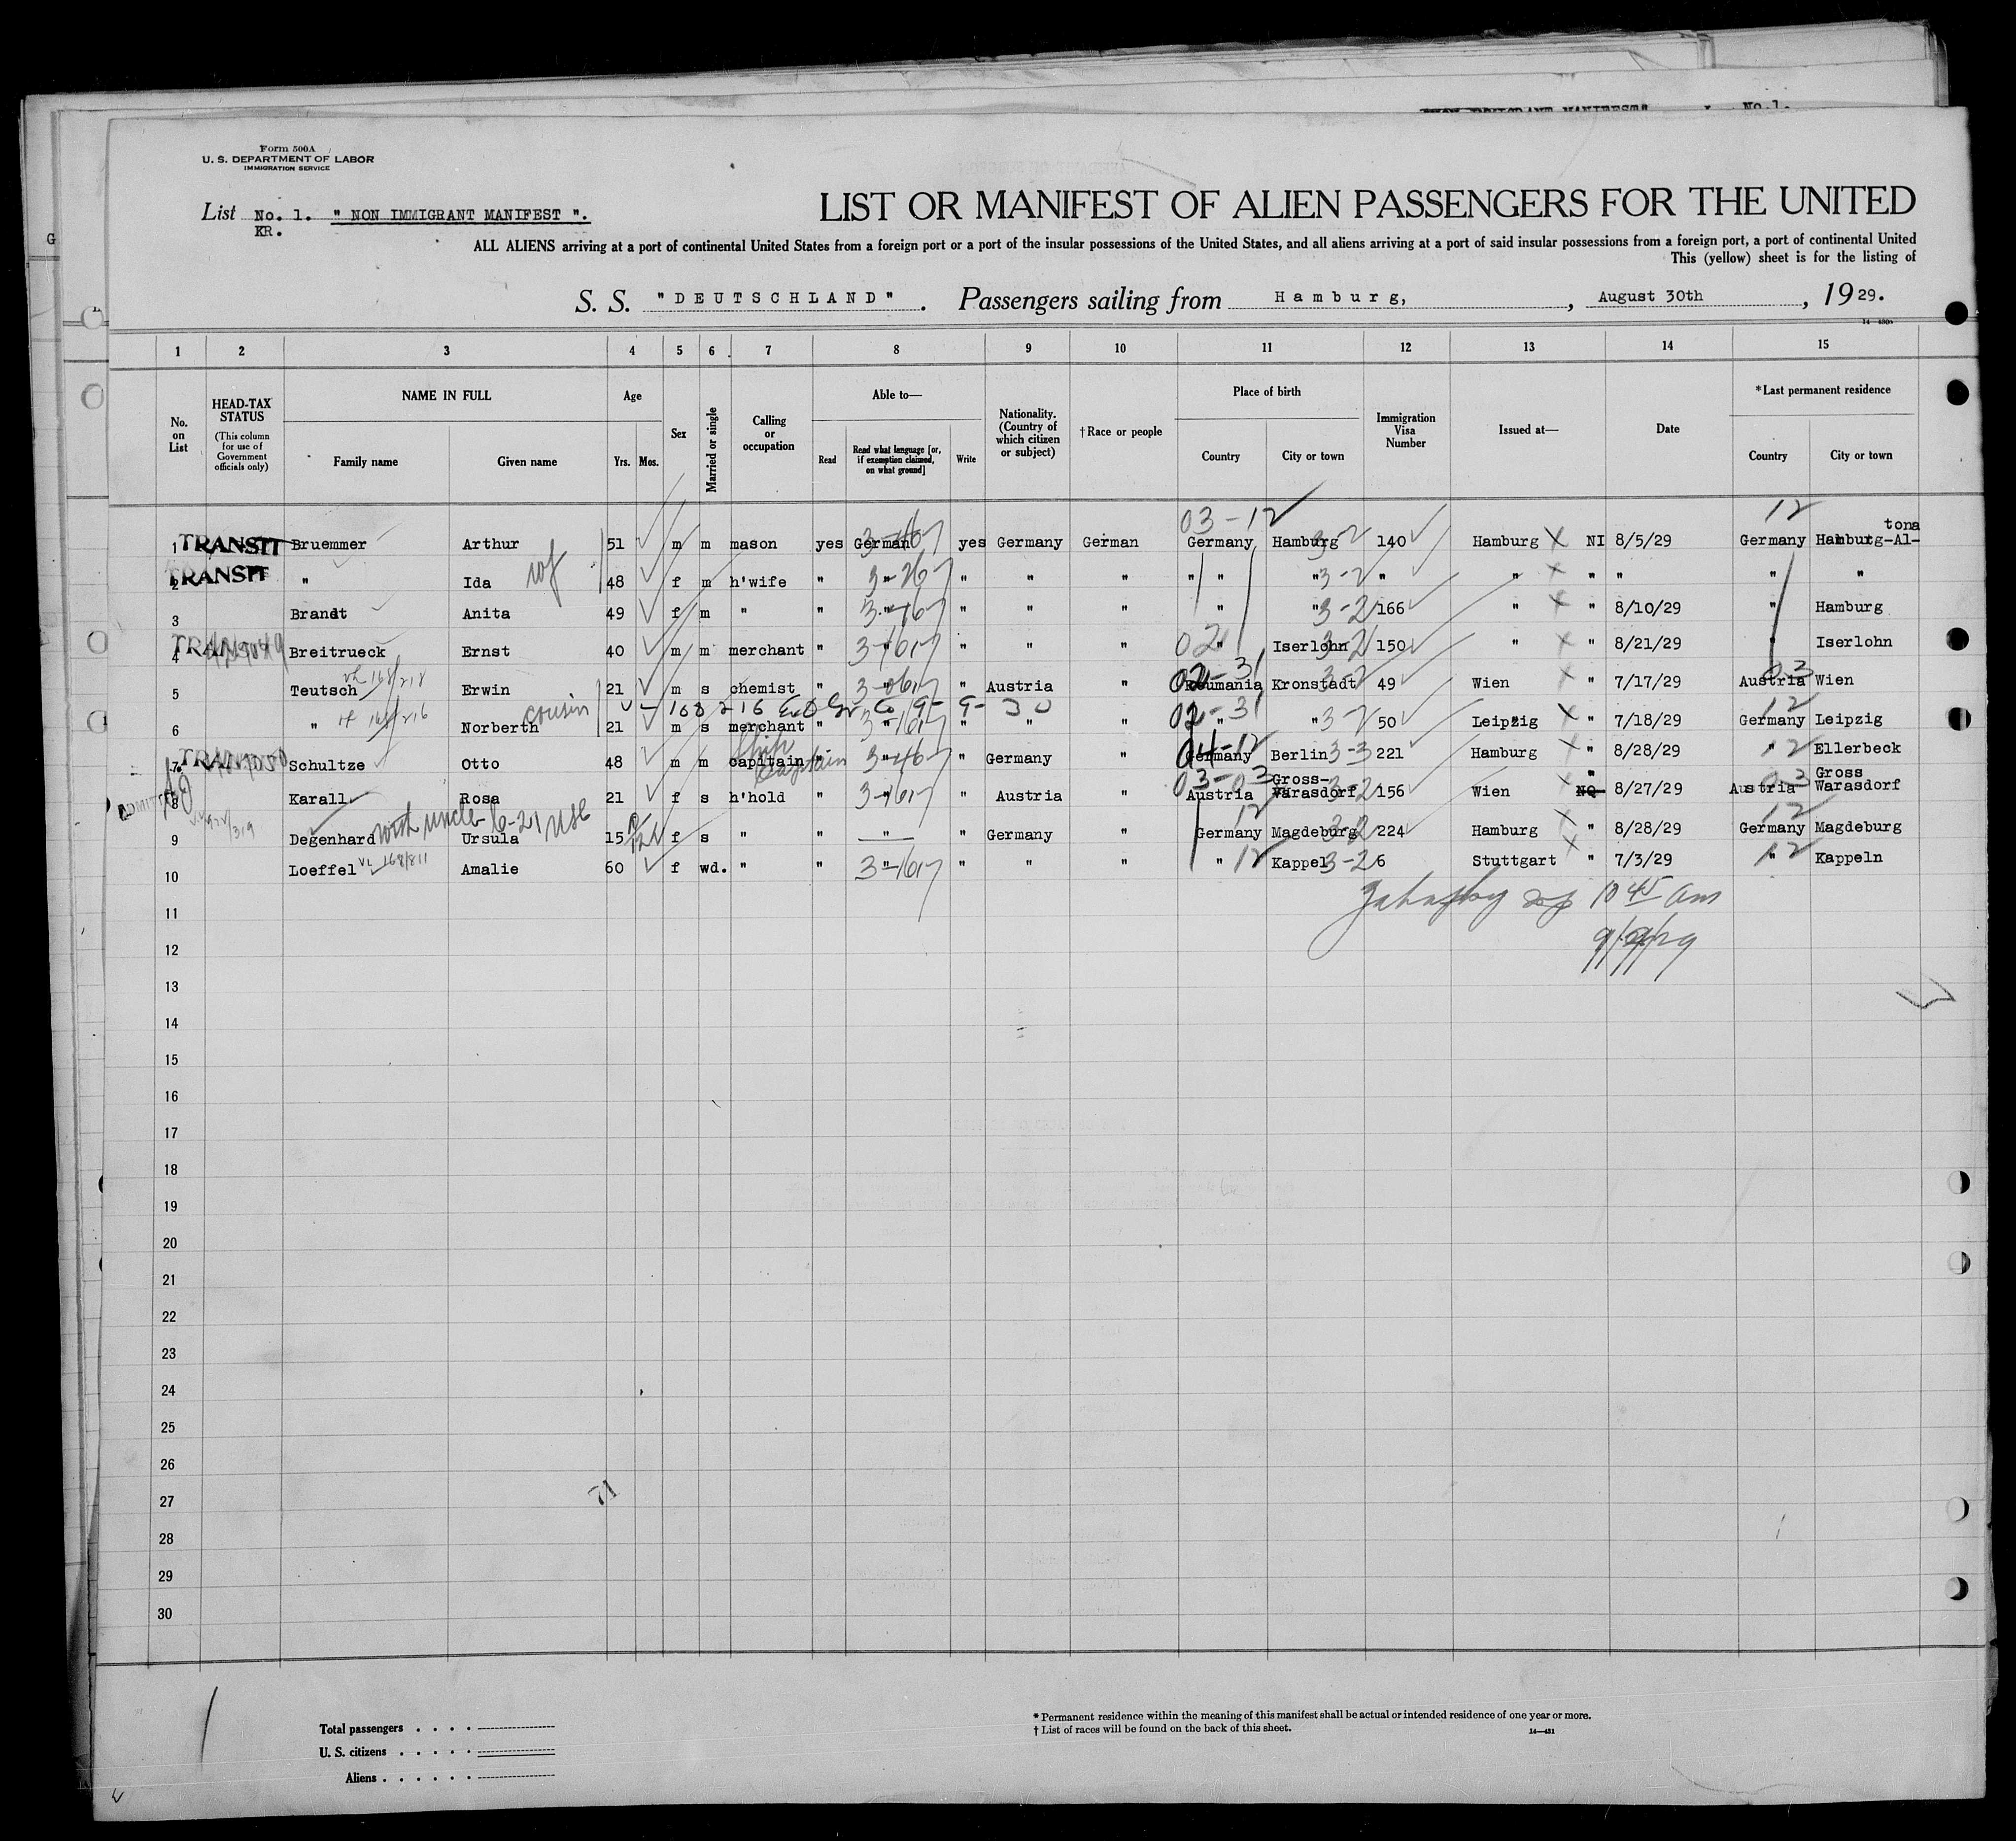 Form 500A
U. S. DEPARTMENT OF LABOR
IMMIGRATION SERVICE
List No. 1. " NON IMMIGRANT MANIFEST ".
KR.
LIST OR MANIFEST OF ALIEN PASSENGERS FOR THE UNITED
ALL ALIENS arriving at a port of continental United States from a foreign port or a port of the insular possessions of the United States, and all aliens arriving at a port of said insular possessions from a foreign port, a port of continental United
This (yellow) sheet is for the listing of
S. S. "DEUTSCHLAND". Passengers sailing from Hamburg, , August 30th , 1929.
1 2 3 4 5 6 7 8 9 10 11 12 13 14 15
No. on List
HEAD-TAX STATUS
(This column for use of Government officials only)
NAME IN FULL
Family name Given name
Age
Yrs. Mos.
Sex
Married or single
Calling or occupation
Able to—
Read
Read what language [or, if exemption claimed, on what ground]
Write
Nationality. (Country of which citizen or subject)
†Race or people
Place of birth
Country City or town
Immigration Visa Number
Issued at—
Date
*Last permanent residence
Country City or town
03-12 12
1 TRANSIT Bruemmer Arthur 51 m m mason yes German yes Germany German Germany Hamburg 140 Hamburg NI 8/5/29 Germany Hamburg-Altona
2 TRANSIT " Ida wf 48 f m h'wife " " " " " " " " " " " " "
3 Brandt Anita 49 f m " " " " " " " " 166 " " 8/10/29 " Hamburg
4 Breitrueck Ernst 40 m m merchant " " " " " " Iserlohn 150 " " 8/21/29 " Iserlohn
5 Teutsch Erwin 21 m s chemist " " " Austria " Roumania Kronstadt 49 Wien " 7/17/29 Austria Wien
6 " Norberth cousin 21 m s merchant " " " " " " " 50 Leipzig " 7/18/29 Germany Leipzig
7 Schultze Otto 48 m m capitain " " Germany " Germany Berlin 221 Hamburg " 8/28/29 " Ellerbeck
Ship Captain
8 Karall Rosa 21 f s h'hold " " " Austria " Austria Gross-Warasdorf 156 Wien NQ 8/27/29 Austria Gross Warasdorf
with uncle 6-21 USC
9 Degenhard Ursula 15 f s " " " " Germany " Germany Magdeburg 224 Hamburg " 8/28/29 Germany Magdeburg
10 Loeffel Amalie 60 f wd. " " " " " " " Kappel 6 Stuttgart " 7/3/29 " Kappeln
10 45 am
11
12
13
14
15
16
17
18
19
20
21
22
23
24
25
26
27
71
28
29
30
Total passengers . . . .
U. S. citizens . . . . .
Aliens . . . . . .
* Permanent residence within the meaning of this manifest shall be actual or intended residence of one year or more.
† List of races will be found on the back of this sheet.
14—431